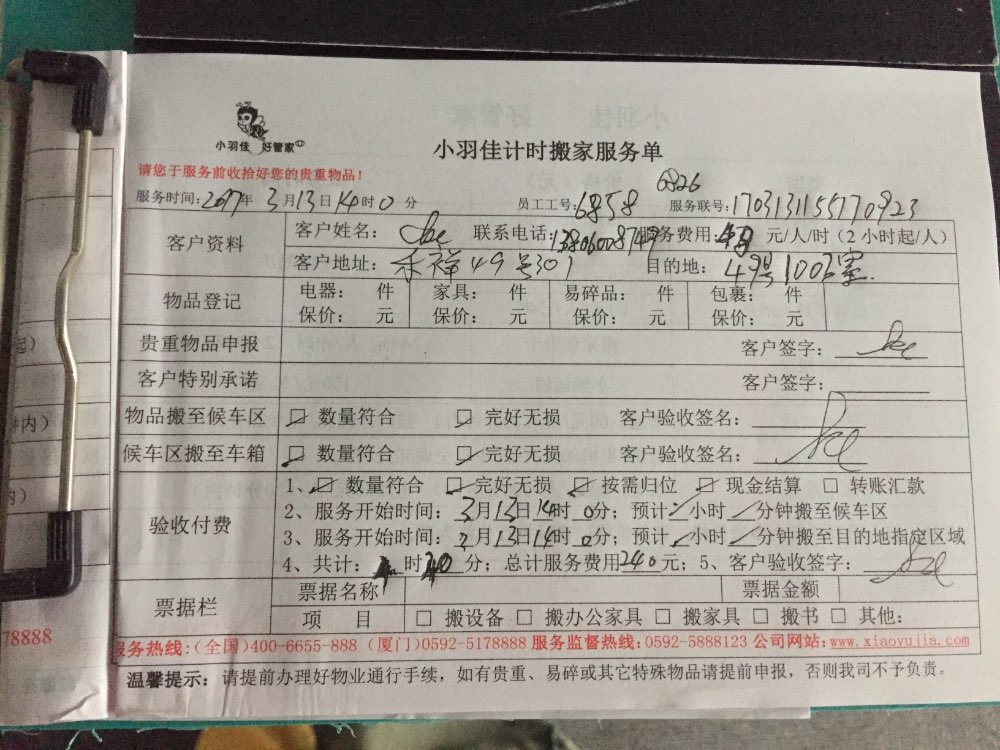 小羽佳 好管家
小羽佳计时搬家服务单
请您于服务前收拾好您的贵重物品!
6826
服务时间:2017年 3月13日14时0分 员工工号:6858 服务联号:1703131155170923
客户资料 客户姓名: 联系电话:13806008749 服务费用: 元/人/时(2小时起/人)
客户地址: 禾祥49号301 目的地: 49号1003室
物品登记 电器: 件 家具: 件 易碎品: 件 包裹: 件
保价: 元 保价: 元 保价: 元 保价: 元
贵重物品申报 客户签字:
客户特别承诺 客户签字:
物品搬至候车区 数量符合 完好无损 客户验收签名:
候车区搬至车箱 数量符合 完好无损 客户验收签名:
验收付费 1、 数量符合 完好无损 按需归位 现金结算 转账汇款
2、服务开始时间:3月13日14时0分;预计 小时 分钟搬至候车区
3、服务开始时间:3月13日14时0分;预计 小时 分钟搬至目的地指定区域
4、共计: 时 分;总计服务费用240元;5、客户验收签字:
票据栏 票据名称 票据金额
项 目 搬设备 搬办公家具 搬家具 搬书 其他:
服务热线:(全国)400-6655-888 (厦门)0592-5178888 服务监督热线:0592-5888123 公司网站:www.xiaoyujia.com
温馨提示:请提前办理好物业通行手续,如有贵重、易碎或其它特殊物品请提前申报,否则我司不予负责。
钟内)
内)
78888